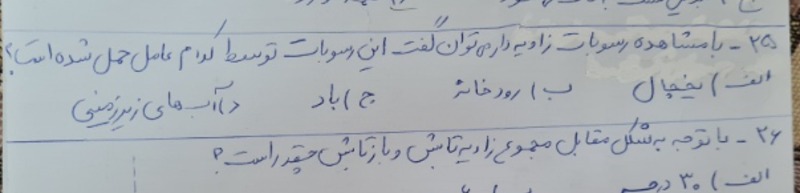 ۲۵ - با مشاهده رسوبات زاویه دار می توان گفت این رسوبات توسط کدام عامل حمل شده است؟
الف) یخچال ب) رودخانه ج) باد د) آب های زیرزمینی
۲۶ - با توجه به شکل مقابل مجموع زاویه تابش و بازتابش چقدر است؟
الف) ۳۰ درجه